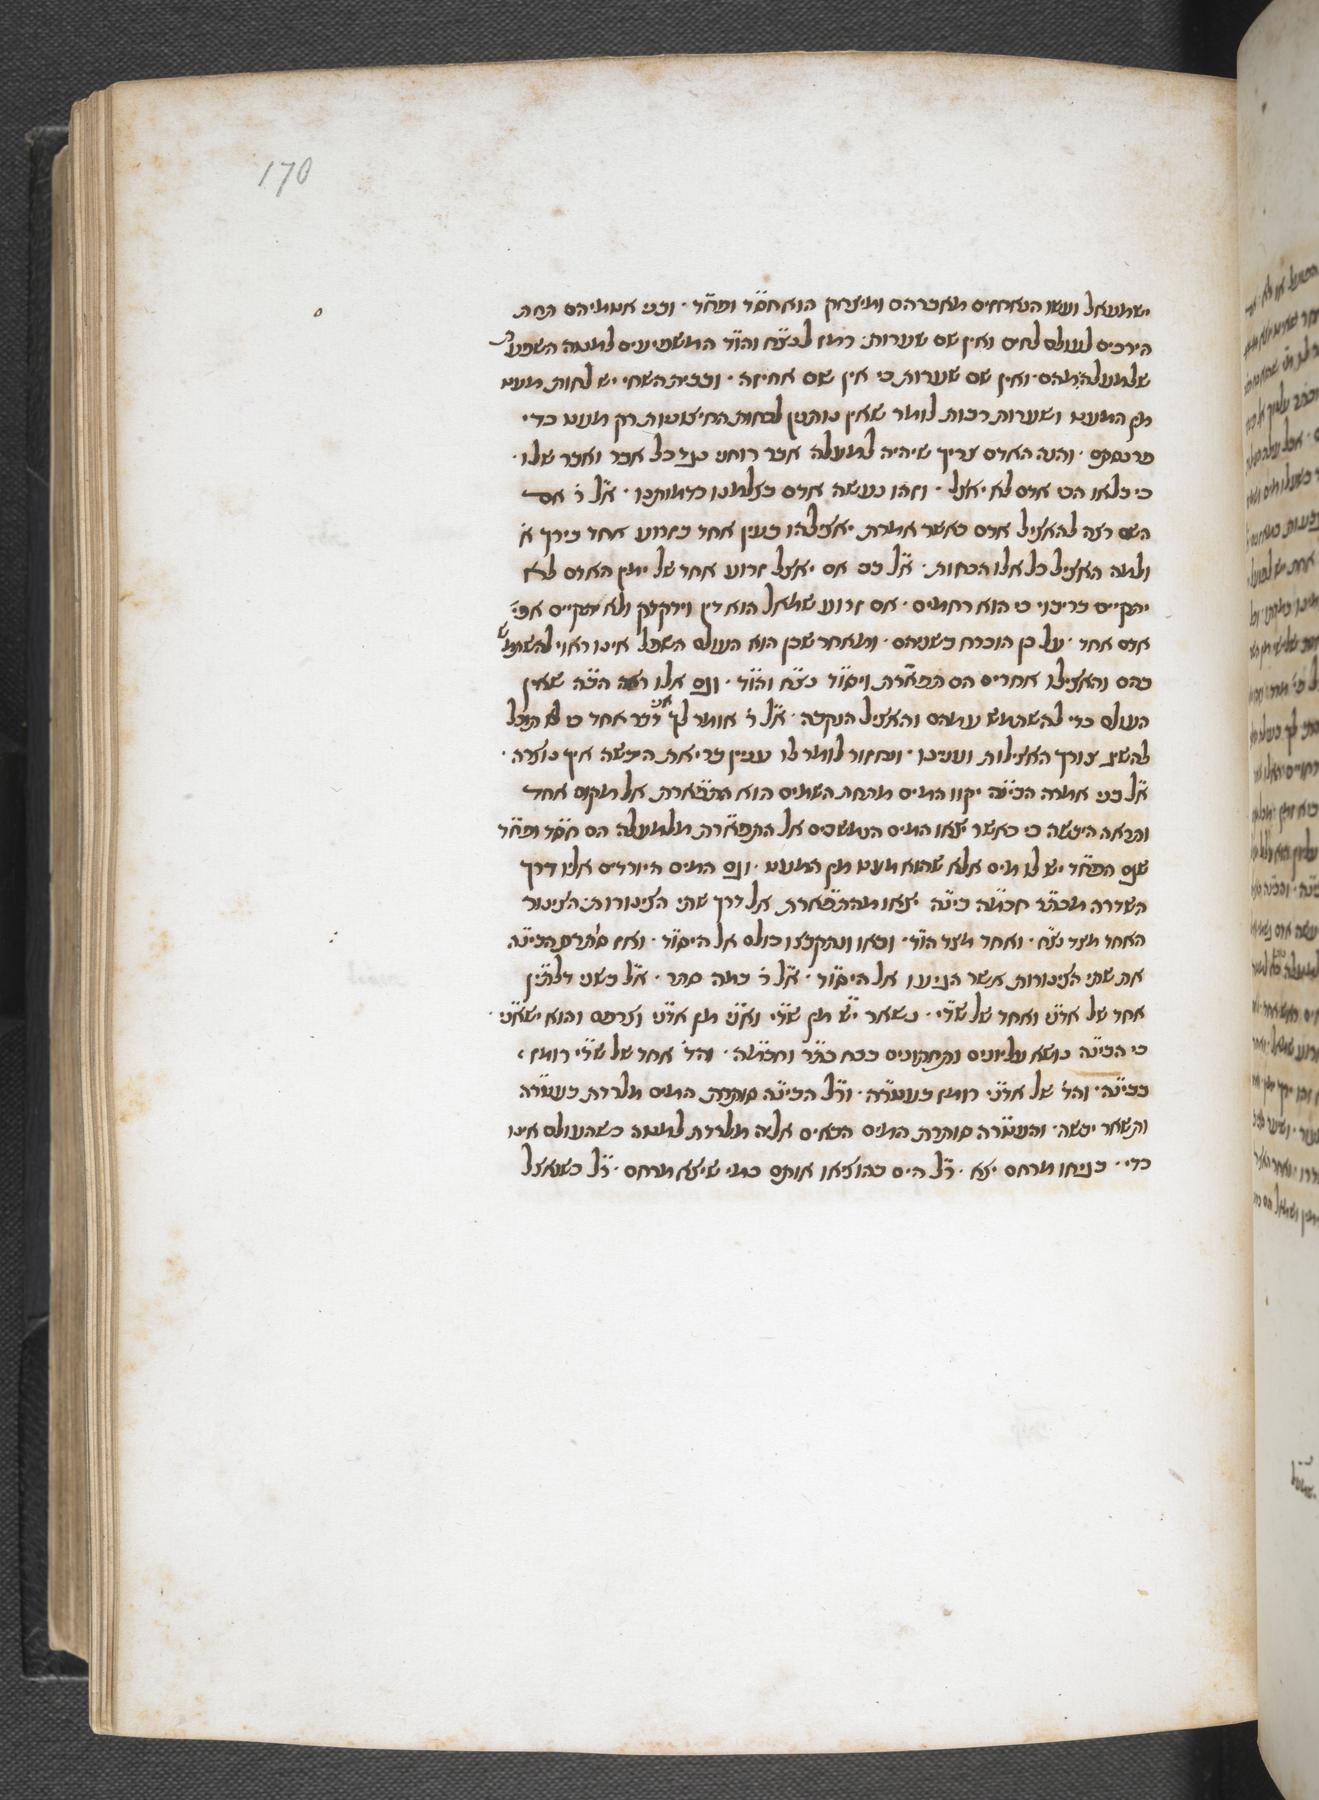 170
ישמעאל ועשו הנאחזים מאברהם ומיצחק הוא חסד ופחד · וכפי אמתיהם תחת
הירכים לעולם לחים ואין שם שערות · רמז לנצח והוד המשפיעים למטה השפע
שלמעלה מהם · ואין שם שערות כי אין שם אחיזה · ובבית השחי יש לחות מעט
מן המעט ושערות רבות לומר שאין נותנין לכחות החיצוניות רק מעט כדי
פרנסתם · והנה האדם צריך שיהיה למעלה אבר רוחני כנגד כל אבר ואבר שלו ·
כי בלאו הכי אדם לא יאצל · וזהו נעשה אדם בצלמנו כדמותנו · א״ל ר׳ אם
השם רצה להאציל אדם כאשר אמרת יאצילהו בעין אחד בזרוע אחד בירך א׳
ולמה האציל כל אלו הכחות · א״ל בם אם יאצל זרוע אחד של ימין האדם לא
יתקיים בריבוי כי הוא רחמים · אם זרוע שמאל הוא דין וידקדק ולא יתקיים אפי׳
אדם אחד · על כן הוכרח בשניהם · ומאחר שכן הוא העולם השפל אינו ראוי להשתמש
בהם והאצילו אחרים הם תפארת ויסוד נצח והוד · וגם אלו ראה הב״ה שאין
העולם כדי להשתמש עמהם והאציל הנקבה · א״ל ר׳ אומר לך אני דבר אחד כי לא תוכל
להשיג צורך האצילות וענינו · ונחזור לומר לו ענין בריאת היבשה איך נוצרה ·
א״ל בני אמרה הבינה יקוו המים מתחת השמים הוא התפארת אל מקום אחד
ותראה היבשה כי כאשר יצאו המים הנמשכים אל התפארת מלמעלה הם חסד ופחד
שגם הפחד יש לו מים אלא שהוא מעט מן המעט · וגם המים היורדים אליו דרך
השדרה מכתר חכמה בינה יצאו מהתפארת אל דרך שתי הצינורות · הצינור
האחד מצד נצח · ואחד מצד הוד · ובאו ונתקבצו כולם אל היסוד · ואז סתרה הבינה
את שתי הצינורות אשר הגיעו אל היסוד · א״ל ר׳ במה סתר · א״ל בשני דלתין
אחד של אדני ואחד של שדי · נשאר יש מן שדי ואני מן אדני וצרפם והוא ישאני ·
כי הבינה נושא עליונים ותחתונים בכח כתר וחכמה · והד׳ אחד של שדי רומז
בבינה · והד׳ של אדני רומז בעטרה · ור״ל הבינה סותרת המים מלרדת בעטרה
ותשאר יבשה · והעטרה סותרת המים הבאים אליה מלרדת למטה כשהעולם אינו
כדי · בגיחו מרחם יצא · ר״ל הים בהוציאו אותם כמי שיצא מרחם · ר״ל כשנאצל